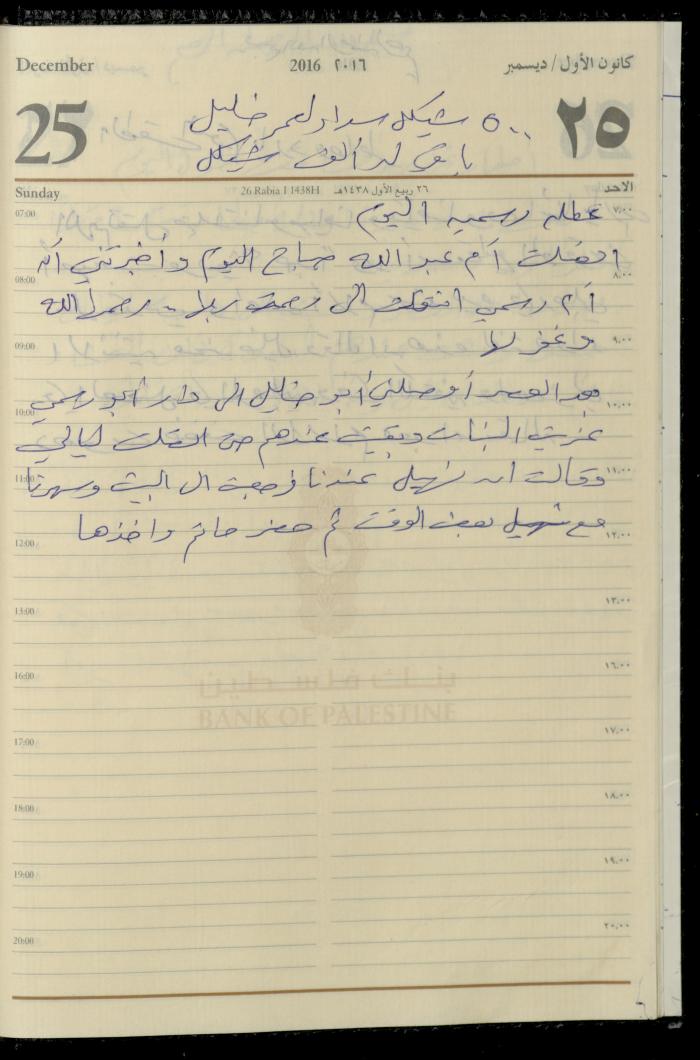 December 2016 ٢٠١٦ كانون الأول / ديسمبر
25 ٢٥
٥٠٠ شيكل سداد لعمر خليل
باقي له ألف شيكل
Sunday 26 Rabia I 1438H ٢٦ ربيع الأول ١٤٣٨هـ الاحد
07:00 ٧:٠٠
عطله رسميه اليوم
اتصلت أم عبد الله صباح اليوم وأخبرتني أنه
08:00 ٨:٠٠
أم رسمي انتقلت الى رحمة ربها - رحمها الله
09:00 ٩:٠٠
وغفر لها
بعد العصر أوصلني أبو خليل الى دار أبو رسمي
10:00 ١٠:٠٠
عزيت البنات وبقيت عندهم حتى اتصلت ليالي
11:00 ١١:٠٠
وقالت ان نهيل عندنا فرجعت الى البيت وسهرنا
مع نهيل بعض الوقت ثم حضر حاتم واخذها
12:00 ١٢:٠٠
13:00 ١٣:٠٠
16:00 ١٦:٠٠
بنك فلسطين
BANK OF PALESTINE
17:00 ١٧:٠٠
18:00 ١٨:٠٠
19:00 ١٩:٠٠
20:00 ٢٠:٠٠